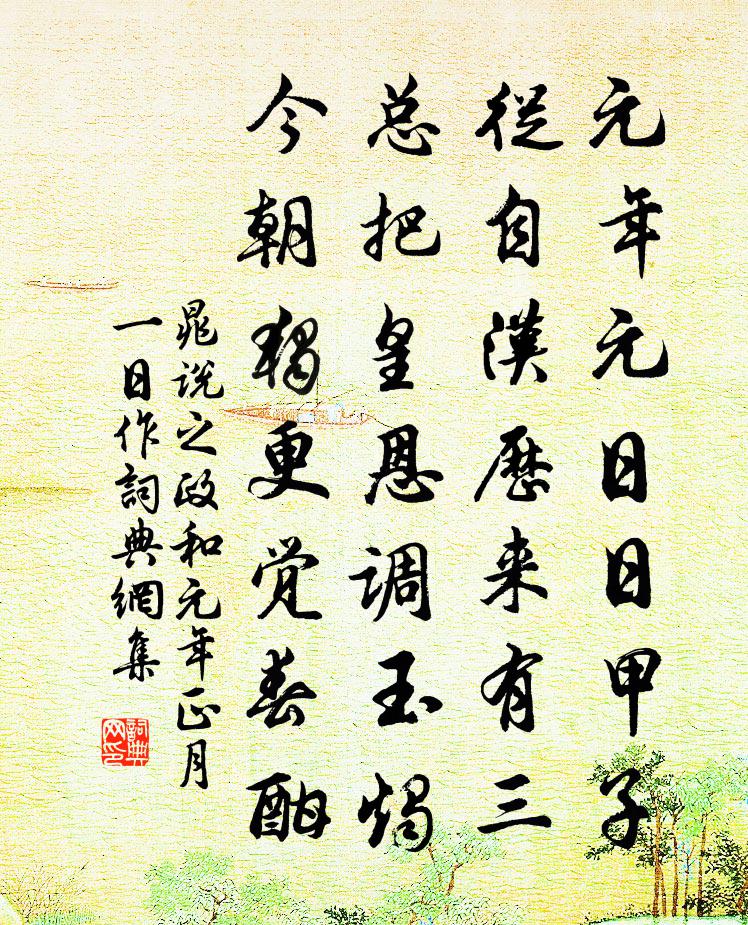 元年元日日甲子
從自漢歷来有三
总把皇恩调玉烛
今朝独更觉春酣
晁说之政和元年正月
一日作詞典網集
詞典
网印